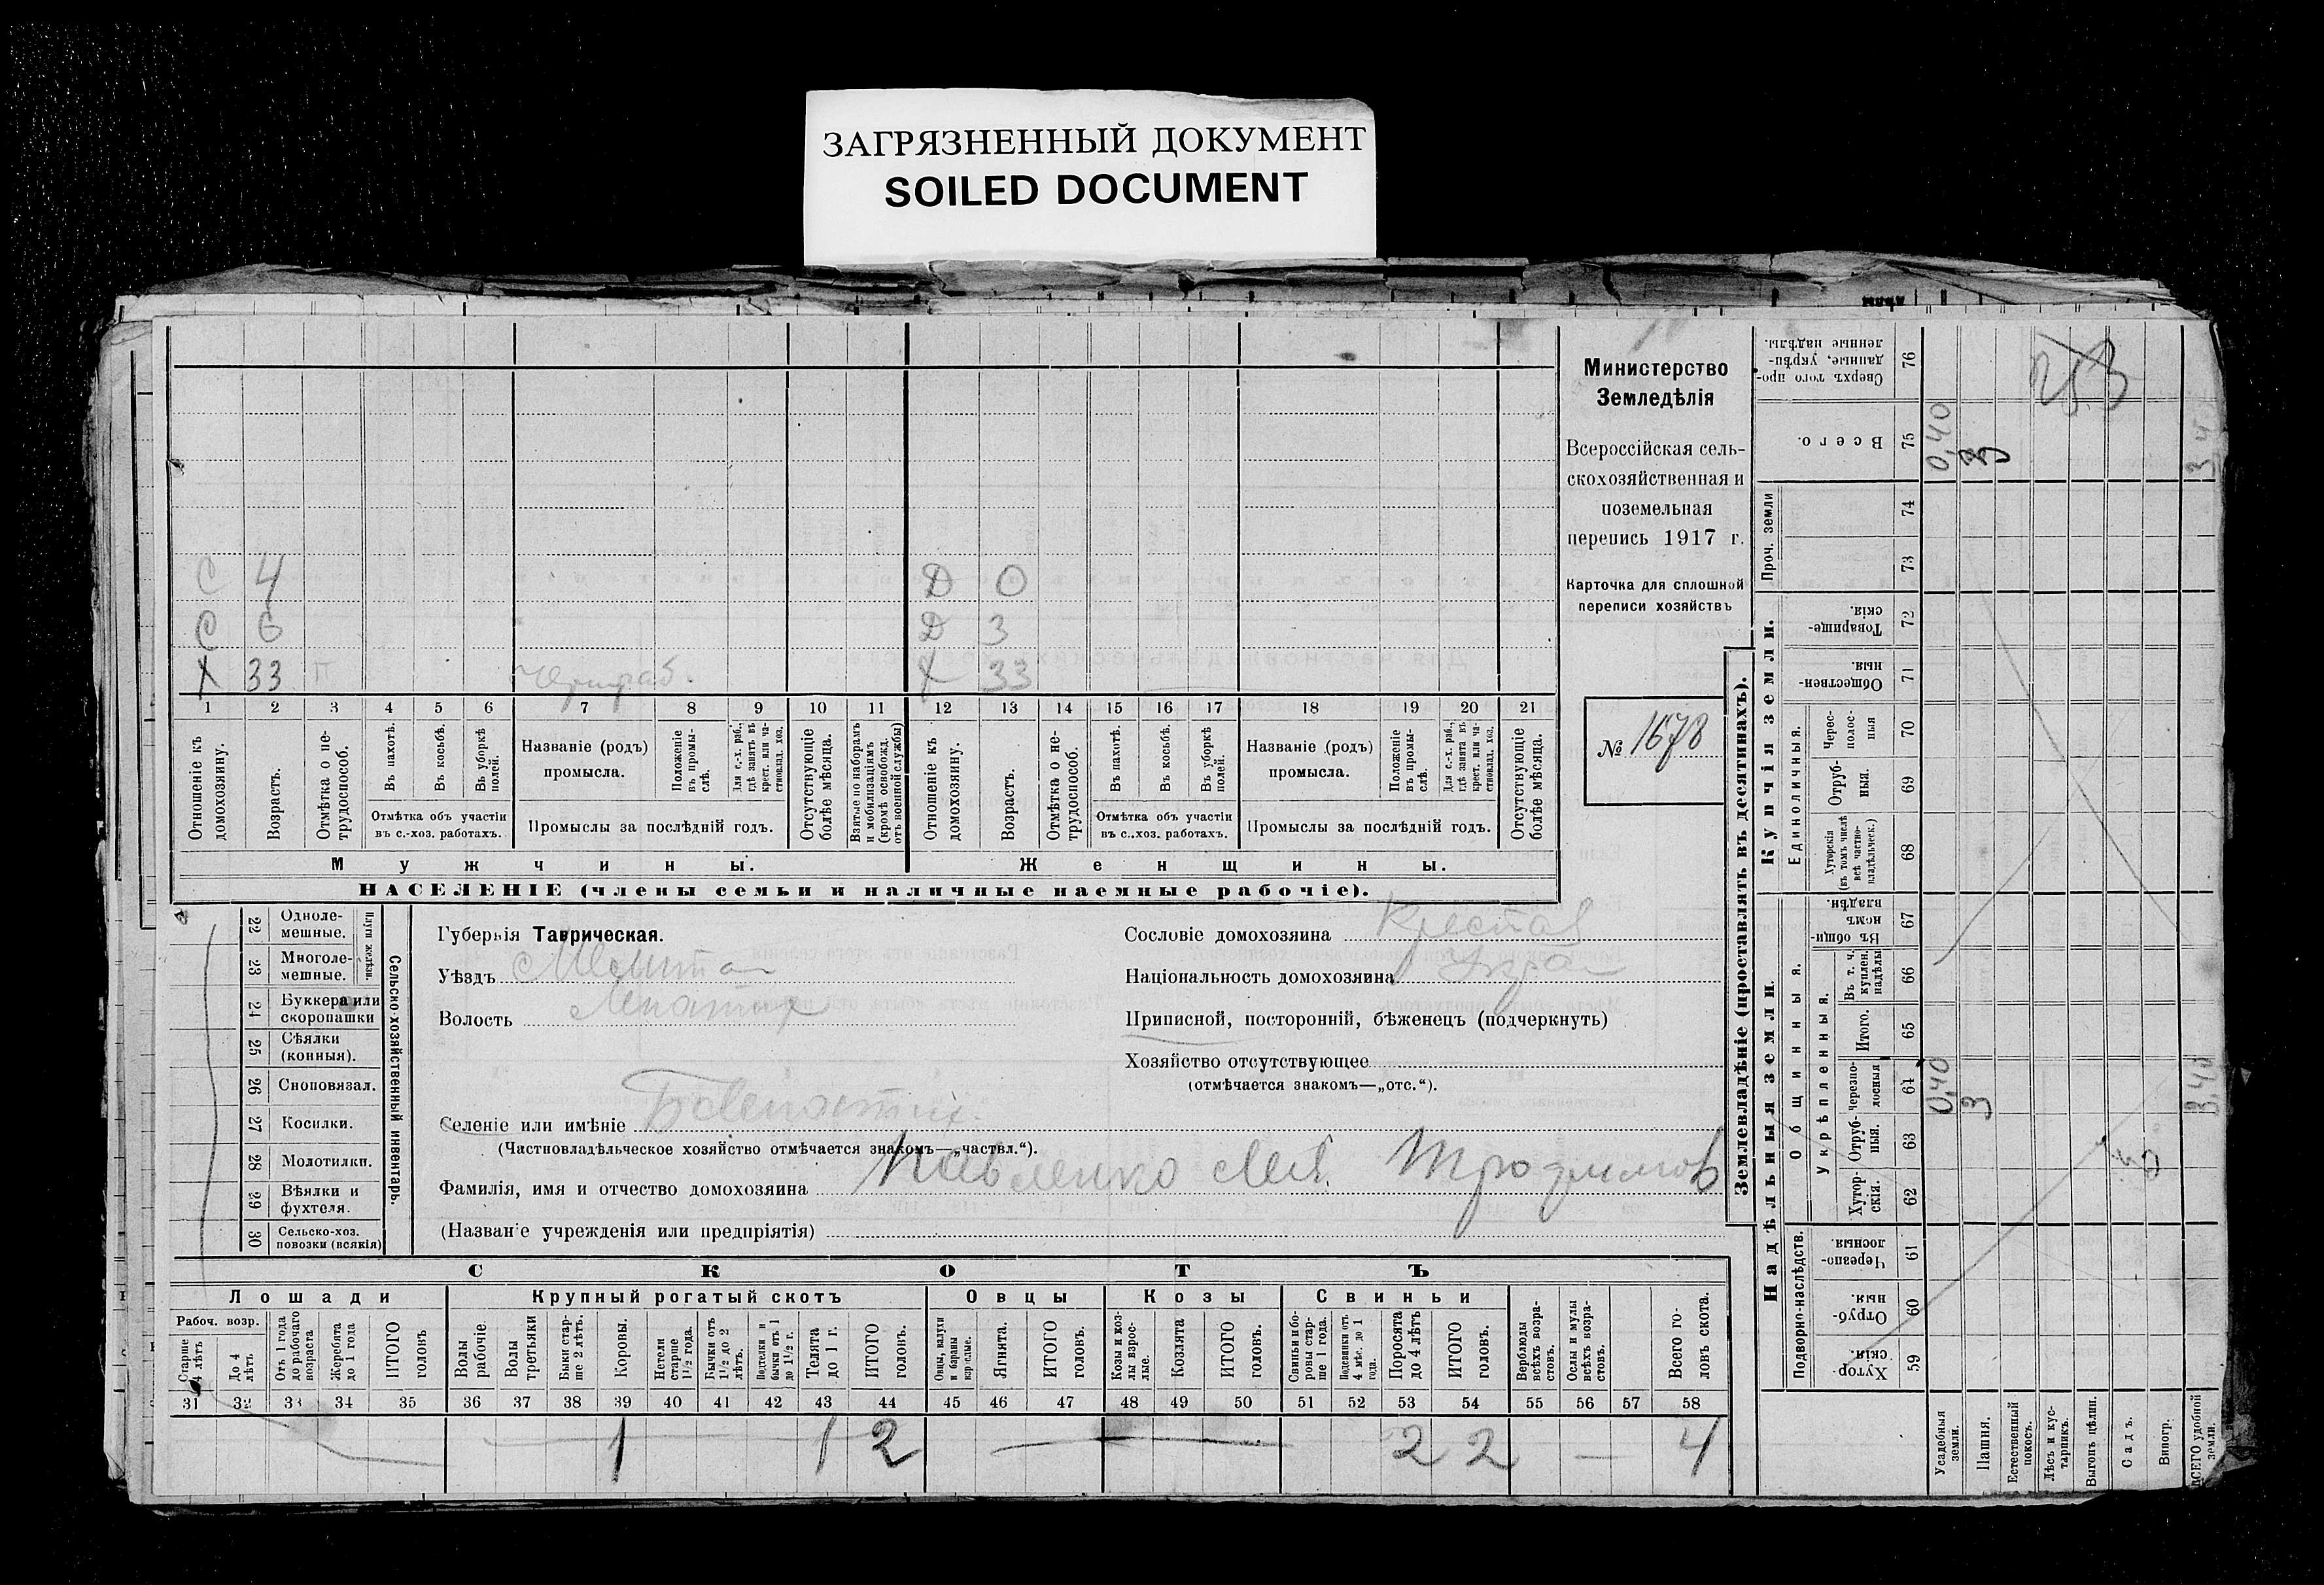 ЗАГРЯЗНЕННЫЙ ДОКУМЕНТ
SOILED DOCUMENT
С 4 Д 0
С 6 Д 3
Х 33 П Х 33
1 2 3 4 5 6 7 8 9 10 11 12 13 14 15 16 17 18 19 20 21
Отношеніе къ домохозяину.
Возрастъ.
Отмѣтка о не-трудоспособ.
Въ пахотѣ.
Въ косьбѣ.
Въ уборкѣ полей.
Отмѣтка объ участіи
въ с.-хоз. работахъ.
Названіе (родъ)
промысла.
Положеніе въ промы-слѣ.
Для с.-х. раб., гдѣ занятъ въ крест. или ча-стновлад. хоз.
Промыслы за послѣдній годъ.
Отсутствующіе болѣе мѣсяца.
Взятые по наборамъ и мобилизаціямъ (кромѣ освобожд. отъ военной службы)
Отношеніе къ домохозяину.
Возрастъ.
Отмѣтка о не-трудоспособ.
Въ пахотѣ.
Въ косьбѣ.
Въ уборкѣ полей.
Отмѣтка объ участіи
въ с.-хоз. работахъ.
Названіе (родъ)
промысла.
Положеніе въ промы-слѣ.
Для с.-х. раб., гдѣ занята въ крест. или ча-стновлад. хоз.
Промыслы за послѣдній годъ.
Отсутствующіе болѣе мѣсяца.
Мужчины.
Женщины.
НАСЕЛЕНІЕ (члены семьи и наличные наемные рабочіе).
Министерство
Земледѣлія
Всероссійская сель-
скохозяйственная и
поземельная
перепись 1917 г.
Карточка для сплошной
переписи хозяйствъ
№ 1678
22 Одноле-
мешные.
23 Многоле-
мешные.
Плуги желѣзн.
24 Буккера или
скоропашки
25 Сѣялки
(конныя).
26 Сноповязал.
27 Косилки.
28 Молотилки.
29 Вѣялки и
фухтеля.
30 Сельско-хоз.
повозки (всякія)
Сельско-хозяйственный инвентарь.
Губернія Таврическая.
Уѣздъ Мелитоп
Волость
Селеніе или имѣніе
(Частновладѣльческое хозяйство отмѣчается знакомъ—„частвл.“).
Фамилія, имя и отчество домохозяина Павленко
(Названіе учрежденія или предпріятія)
Сословіе домохозяина Крестья
Національность домохозяина Укра
Приписной, посторонній, бѣженецъ (подчеркнуть)
Хозяйство отсутствующее
(отмѣчается знакомъ—„отс.“).
СКОТЪ
Лошади
Крупный рогатый скотъ
Овцы
Козы
Свиньи
Рабоч. возр.
Старше 4 лѣтъ
До 4 лѣтъ
Отъ 1 года до рабочаго возраста
Жеребята до 1 года
ИТОГО головъ
Волы рабочіе.
Волы третьяки
Быки стар-ше 2 лѣтъ.
Коровы.
Нетели старше 1½ года.
Бычки отъ 1½ до 2 лѣтъ.
Подтелки и бычки отъ 1 до 1½ г.
Телята до 1 г.
ИТОГО головъ.
Овцы, валухи и бараны взрослые.
Ягнята.
ИТОГО головъ.
Козы и коз-лы взрос-лые.
Козлята
ИТОГО головъ.
Свиньи и бо-ровы стар-ше 1 года.
Подсвинки отъ 4 мѣс. до 1 года.
Поросята до 4 лѣтъ
ИТОГО головъ.
Верблюды всѣхъ возра-стовъ.
Ослы и мулы всѣхъ возра-стовъ.
Всего го-ловъ скота.
31 32 33 34 35 36 37 38 39 40 41 42 43 44 45 46 47 48 49 50 51 52 53 54 55 56 57 58
1 1 2 2 2 4
Землевладѣніе (проставлять въ десятинахъ).
Надѣльныя земли.
Купчія земли.
Проч. земли
Подворно-наслѣдств.
Общинныя.
Укрѣпленныя.
Единоличныя.
Хутор-скія. 59
Отруб-ныя. 60
Черезпо-лосныя 61
Хутор-скія. 62
Отруб-ныя. 63
Черезпо-лосныя 64
Итого. 65
Въ т. ч. куплен. надѣлы 66
Въ общи-номъ владѣн. 67
Хуторскія (въ томъ числѣ всѣ частно-владѣльческ.) 68
Отруб-ныя. 69
Черес-полос-ныя 70
Обществен-ныя. 71
Товарище-скія. 72
73
74
Всего. 75
Сверхъ того про-данные, укрѣп-ленные надѣлы. 76
Усадебныя земли. 0,40 0,40
Пашня. 3 3
Естественный покосъ.
Лѣсъ и кус-тарникъ.
Выгонъ цѣлин.
Садъ.
Виногр.
ВСЕГО удобной земли. 3,40 3,40
253